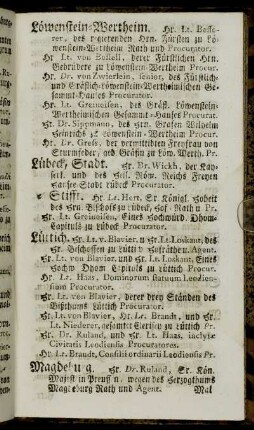 Löwenstein-Wertheim. Hr. Lt. Bosse-
ver, des regierenden Hrn. Fürsten zu Lö-
wenstein-Wertheim Rath und Procurator.
Hr Lt. von Bossell, derer Fürstlichen Hrn.
Gebrüdere zu Löwenstein-Wertheim Procur.
Hr. Dr. von Zwierlein, senior, des Fürstlich-
und Gräflich-Löwenstein-Wertheimischen Ge-
sammt-Hauses Procurator.
Hr. Lt. Greineisen, des Gräfl. Löwenstein-
Wertheimischen Gesammt-Hauses Procurat.
Hr. Dr. Sippmann, des Hrn. Grafen Wilhelm
Heinrichs zu Löwenstein-Wertheim Procur.
Hr. Dr. Greß, der vermittibten Freyfrau von
Sturmfeder, geb. Gräfin zu Löw. Werth. Pr.
Lübeck, Stadt. Hr. Dr. Wickh, der Kay-
serl. und des Heil. Röm. Reichs Freyen
Hansee Stadt Lübeck Procurator.
Stifft. Hr. Lt. Hert, Sr. Königl. Hoheit
des Hrn. Bischofs zu Lübeck, Hof-Rath u. Pr.
Hr. Lt. Greineisen, Eines Hochwürd. Dhom-
Capituls zu Lübeck Procurator.
Lüttich. Hr. Lt. v. Blavier, u. Hr. Lt. Loskant, des
Hr. Lt. von Blavier, und Hr. Lt. Loskant, Eines
Hochw. Dhom Capituls zu Lüttich Procur.
Hr. Lt. Haas, Dominorum statuum Leodien-
sium Procurator.
Hr. Lt. von Blavier, derer drey Ständen des
Bißthums Lüttich Procurator.
Hr. Lt. von Blavier, Hr. Lt. Brandt, und Hr.
Lt. Niederer, gesamter Clerisey zu Lüttich Pr.
Hr. Dr. Ruland, und Hr. Lt. Haas, inclytæ
Civitatis Leodiensis Procuratores.
Hr. Lt. Brandt, Consilii ordinarii Leodiensis Pr.
Magdeburg. Hr. Dr. Ruland, Sr. Kön.
Majest. in Preussen, wegen des Herzogthums
Magdeburg Rath und Agent.
Mal